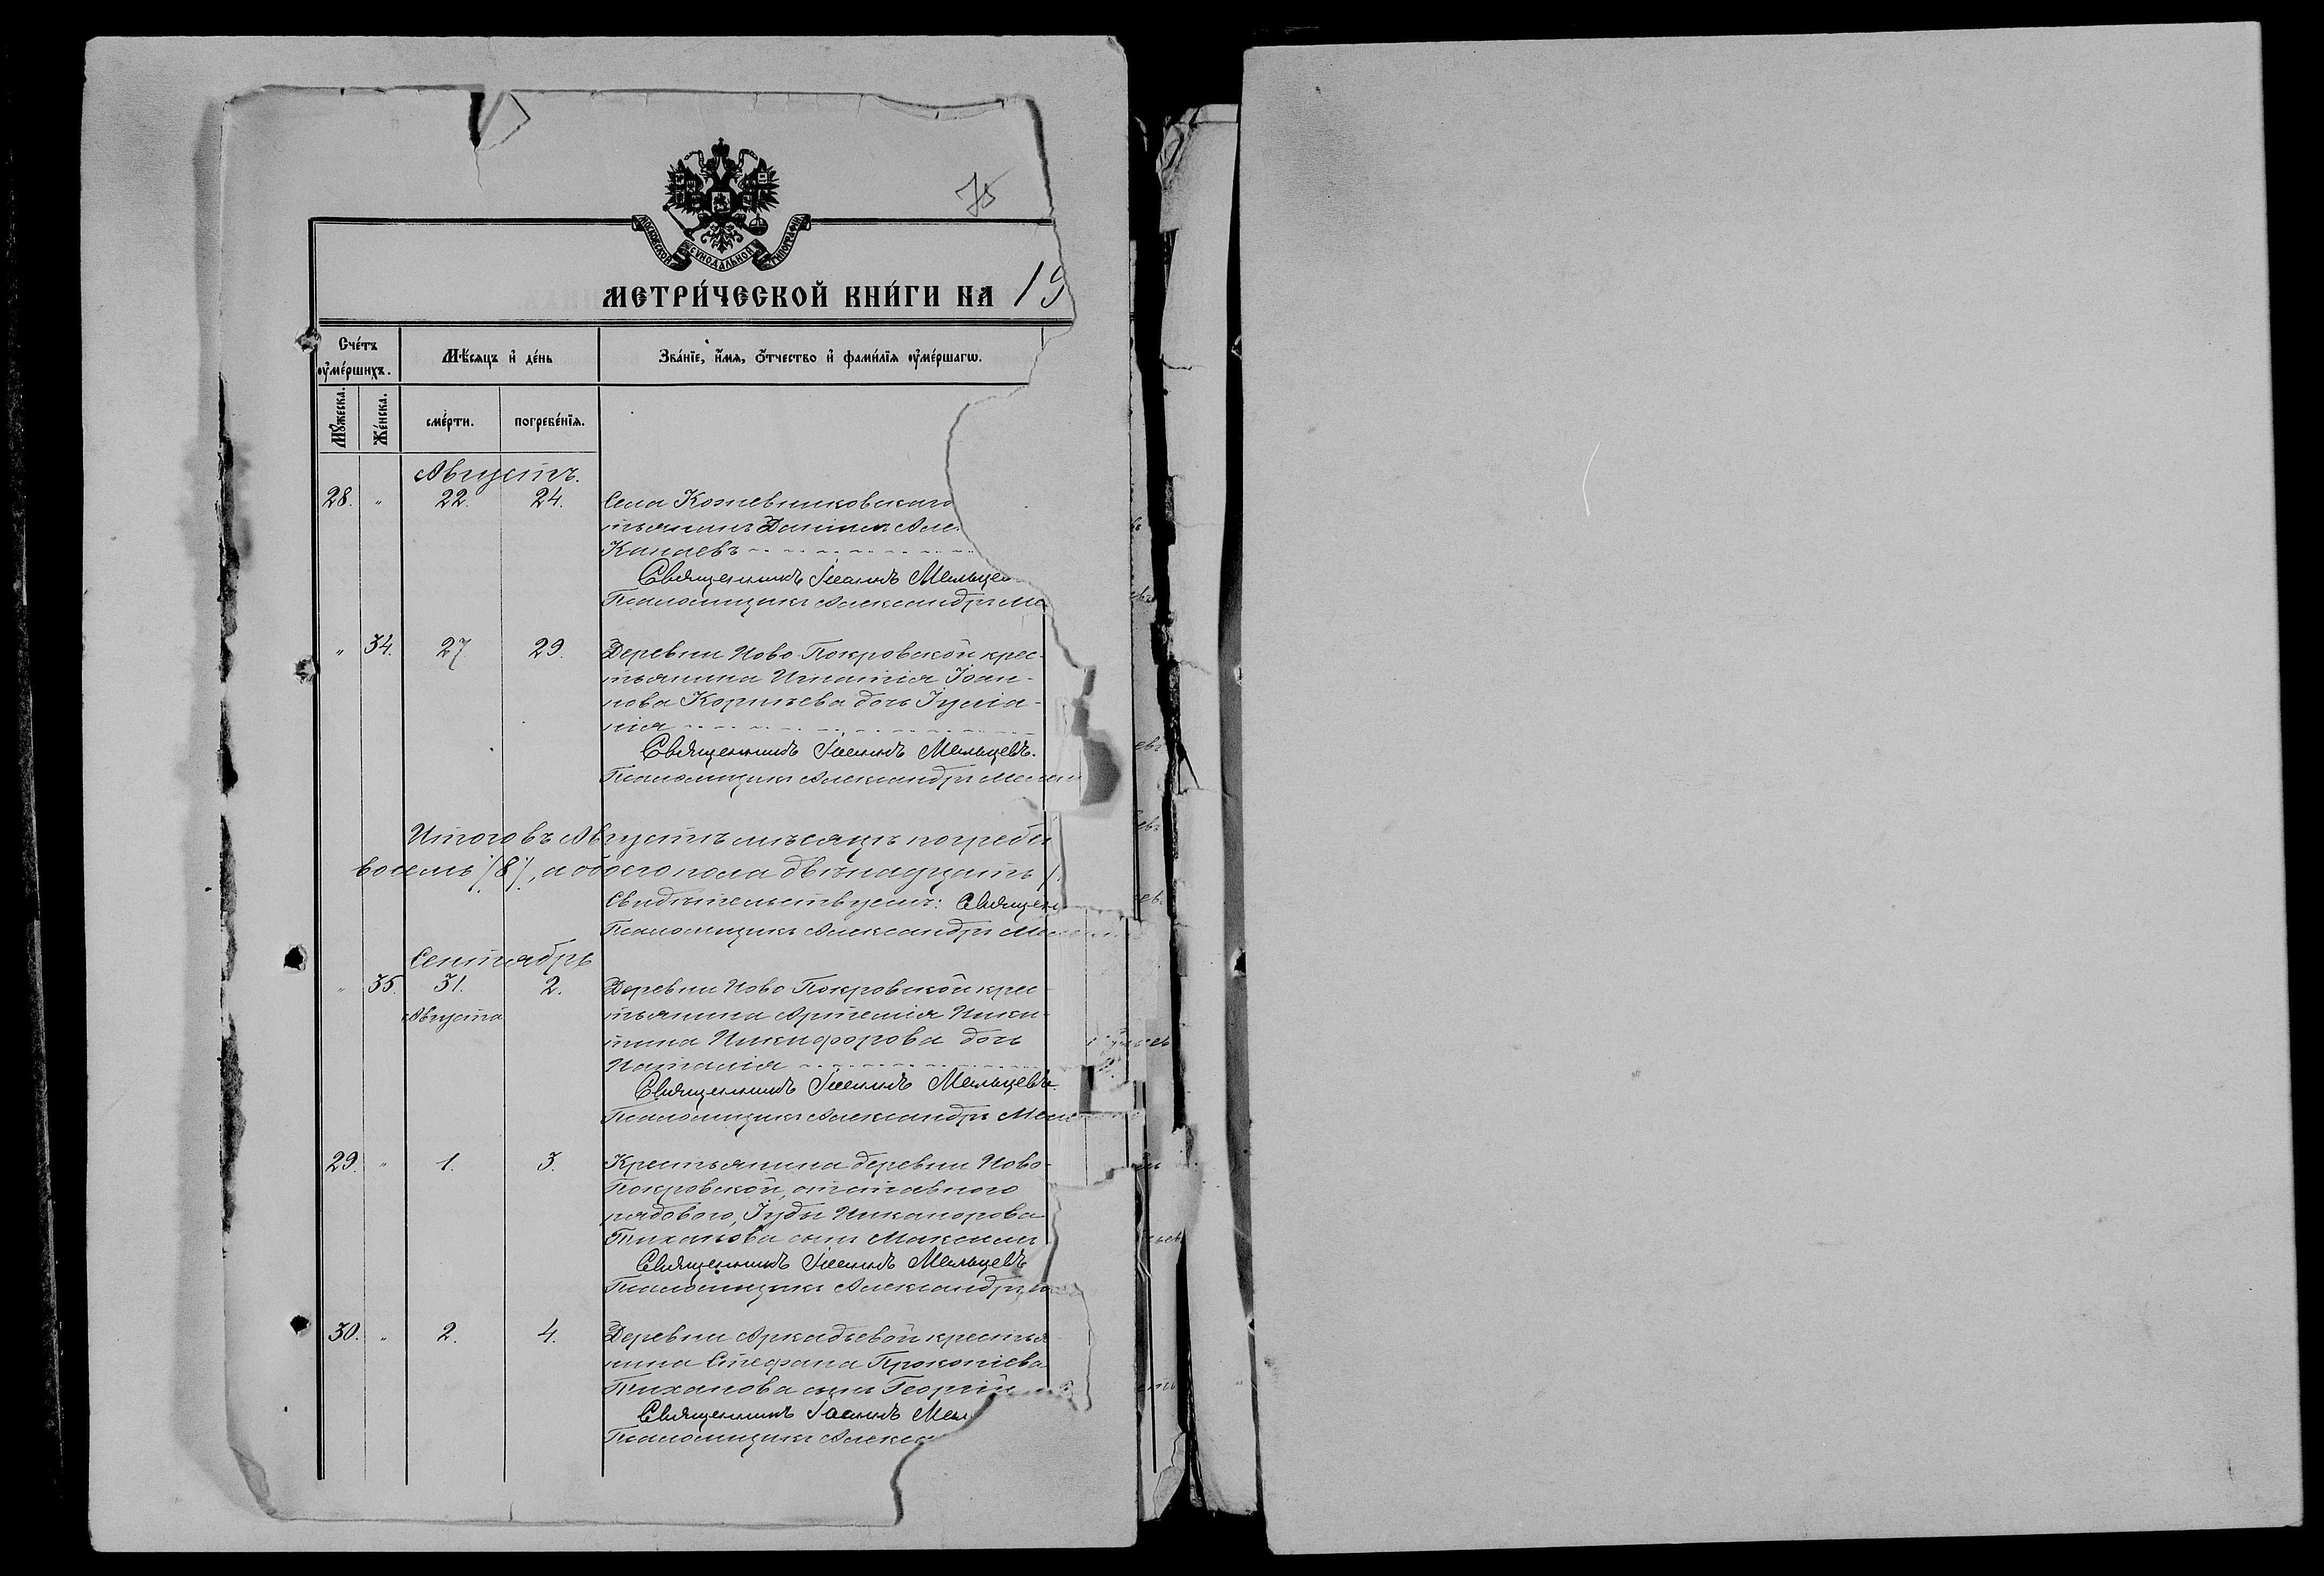 75
МОСКОВСКОЙ СѴНОДАЛЬНОЙ ТИПОГРАФІИ
МЕТРИ́ЧЕСКОЙ КНИ́ГИ НА 19
Сче́тъ ᲂу҆ме́ршихъ.
Мѣ́сяцъ и҆ де́нь
Зва́нїе, и҆́мѧ, ѻ҆́тчество и҆ фами́лїѧ ᲂу҆ме́ршагѡ.
Мꙋ́жеска.
Же́нска.
сме́рти.
погребе́нїѧ.
Августъ.
28. " 22. 24. Села Кожевниковскаго
тьянинъ Даніилъ Але
Канаевъ
Священникъ Іоаннъ Мальцев
Псаломщикъ Александръ Ме
" 34. 27 29. Деревни Ново-Покровской крес-
тьянина Игнатія Іоан-
нова Корнѣева дочь Іуліа-
нія
Священникъ Іоаннъ Мальцевъ.
Псаломщикъ Александръ
Итого въ Августѣ мѣсяцѣ погребе
восемь /8/, а обоего пола двѣнадцать /
Свидѣтельствуемъ: Священ
Псаломщикъ Александръ
Сентябрь
" 35. 31. 2. Деревни Ново-Покровской крес-
Августа
тьянина Артемія Ники-
тина Никифорова дочь
Наталія
Священникъ Іоаннъ Мальцевъ.
Псаломщикъ Александръ
29. " 1. 3. Крестьянина деревни Ново-
Покровской, отставного
рядового, Іуды Никанорова
Тиханова сынъ Максимъ
Священникъ Іоаннъ Мальцевъ
Псаломщикъ Александръ
30. " 2. 4. Деревни Аркадьевой крестья
нина Стефана Прокопіева
Тиханова сынъ Георгій
Священникъ Іоаннъ Мал
Псаломщикъ Алекса